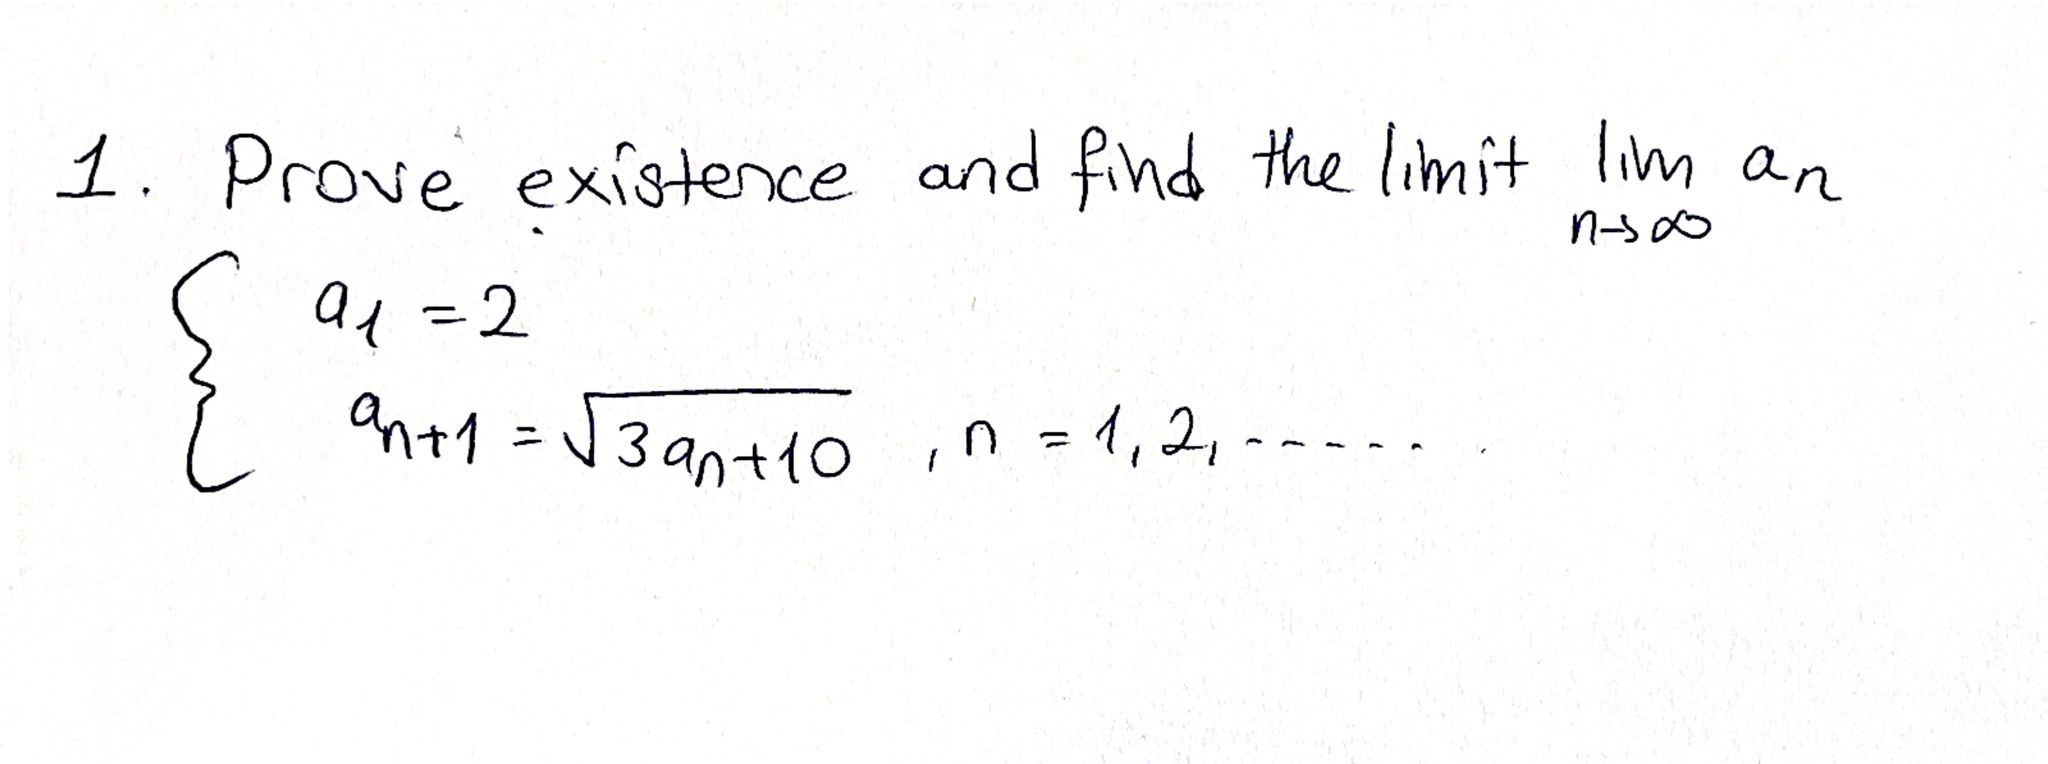 1. Prove existence and find the limit lim a_n
n→∞
{ a_1 = 2
a_{n+1} = √(3a_n+10) , n = 1, 2, ------